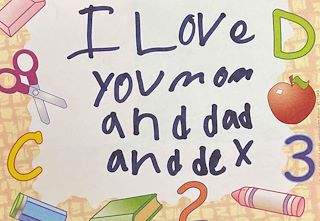 I LOVe
you mom
and dad
and dex
D
C
3
?